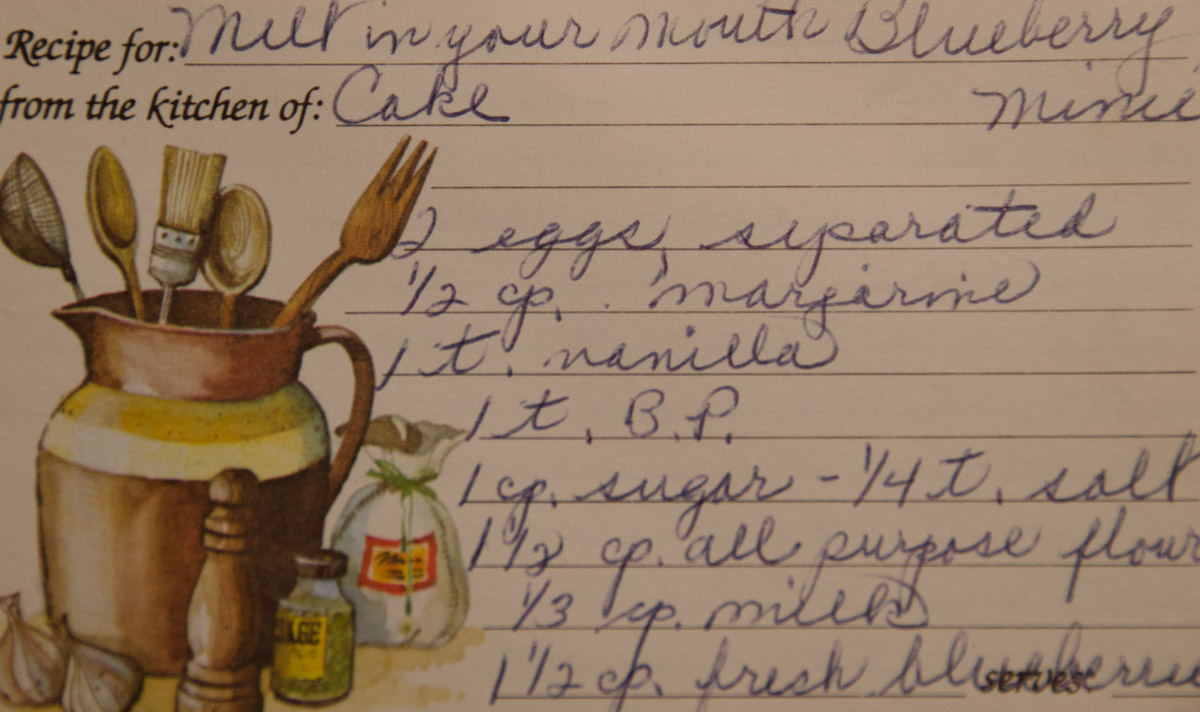 Recipe for: Melt in your mouth Blueberry
from the kitchen of: Cake Mimie
2 eggs, separated
1/2 cp. margarine
1 t. vanilla
1 t. B.P.
1 cp. sugar - 1/4 t. salt
1 1/2 cp. all purpose flour
1/3 cp. milk
1 1/2 cp. fresh blueberrie
serves: